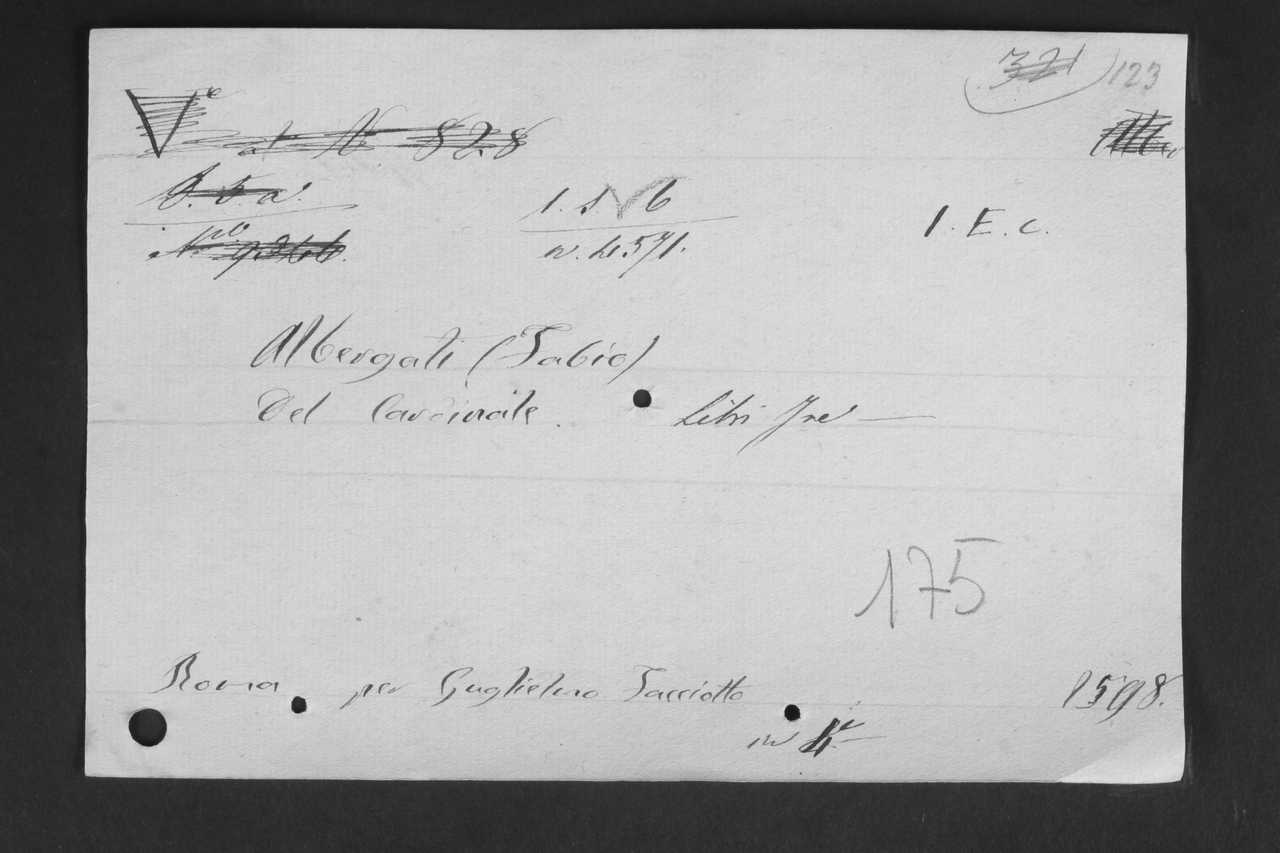 321 123
V.e at N 828
I. S b
n. 4571.
I. E. C.
Albergati (Fabio)
Del Cardinale. Libri Tre
175
Roma per Guglielmo Facciotto 1598.
in 4º